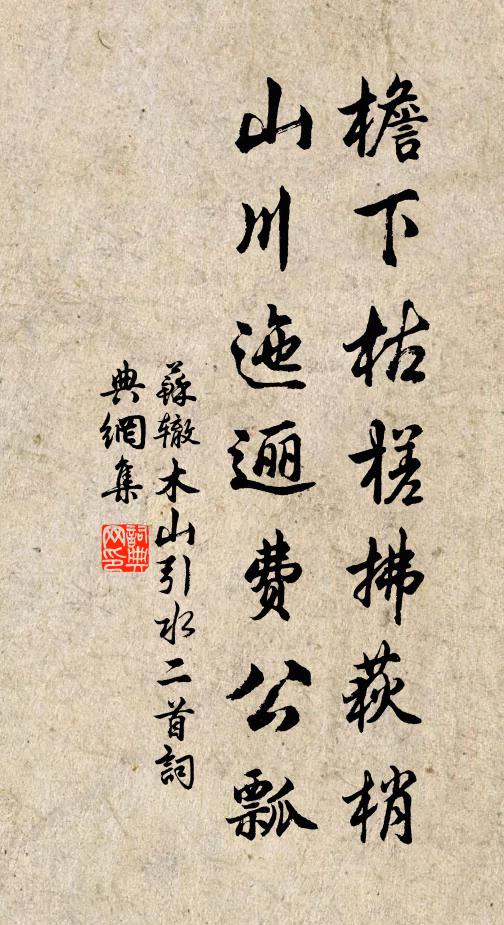 檐下枯槎拂荻梢
山川迤逦費公瓢
蘇辙木山引水二首詞
典網集
詞典
网印